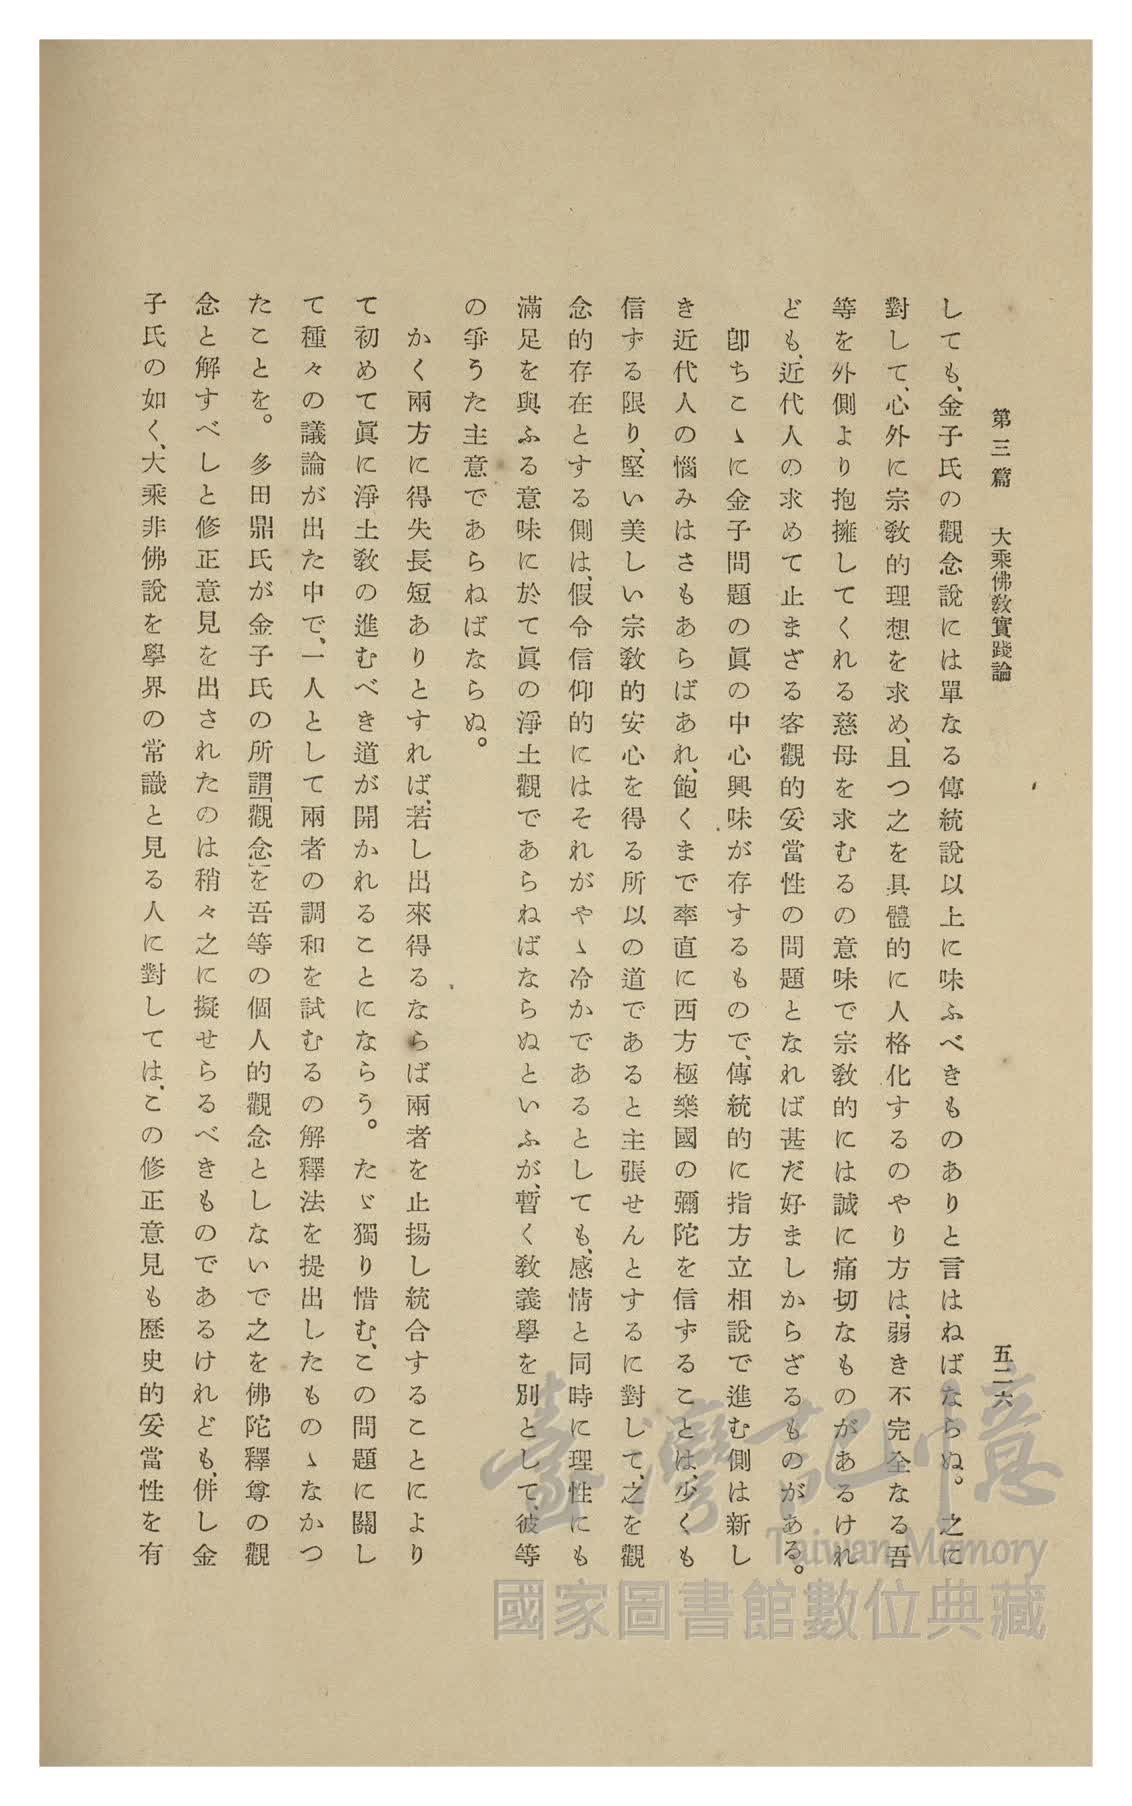 第三篇　大乘佛敎實踐論　五二六
しても、金子氏の觀念說には單なる傳統說以上に味ふべきものありと言はねばならぬ。之に
對して、心外に宗敎的理想を求め、且つ之を具體的に人格化するのやり方は、弱き不完全なる吾
等を外側より抱擁してくれる慈母を求むるの意味で宗敎的には誠に痛切なものがあるけれ
ども、近代人の求めて止まざる客觀的妥當性の問題となれば甚だ好ましからざるものがある。
卽ちこゝに金子問題の眞の中心興味が存するもので、傳統的に指方立相說で進む側は新し
き近代人の惱みはさもあらばあれ、飽くまで率直に西方極樂國の彌陀を信ずることは、少くも
信ずる限り、堅い美しい宗敎的安心を得る所以の道であると主張せんとするに對して、之を觀
念的存在とする側は、假令信仰的にはそれがやゝ冷かであるとしても、感情と同時に理性にも
滿足を與ふる意味に於て眞の淨土觀であらねばならぬといふが、暫く敎義學を別として、彼等
の爭うた主意であらねばならぬ。
かく兩方に得失長短ありとすれば、若し出來得るならば兩者を止揚し統合することにより
て初めて眞に淨土敎の進むべき道が開かれることにならう。たゞ獨り惜む、この問題に關し
て種々の議論が出た中で、一人として兩者の調和を試むるの解釋法を提出したものゝなかつ
たことを。多田鼎氏が金子氏の所謂「觀念」を吾等の個人的觀念としないで之を佛陀釋尊の觀
念と解すべしと修正意見を出されたのは稍々之に擬せらるべきものであるけれども、併し金
子氏の如く、大乘非佛說を學界の常識と見る人に對しては、この修正意見も歷史的妥當性を有
臺灣記憶
Taiwan Memory
國家圖書館數位典藏